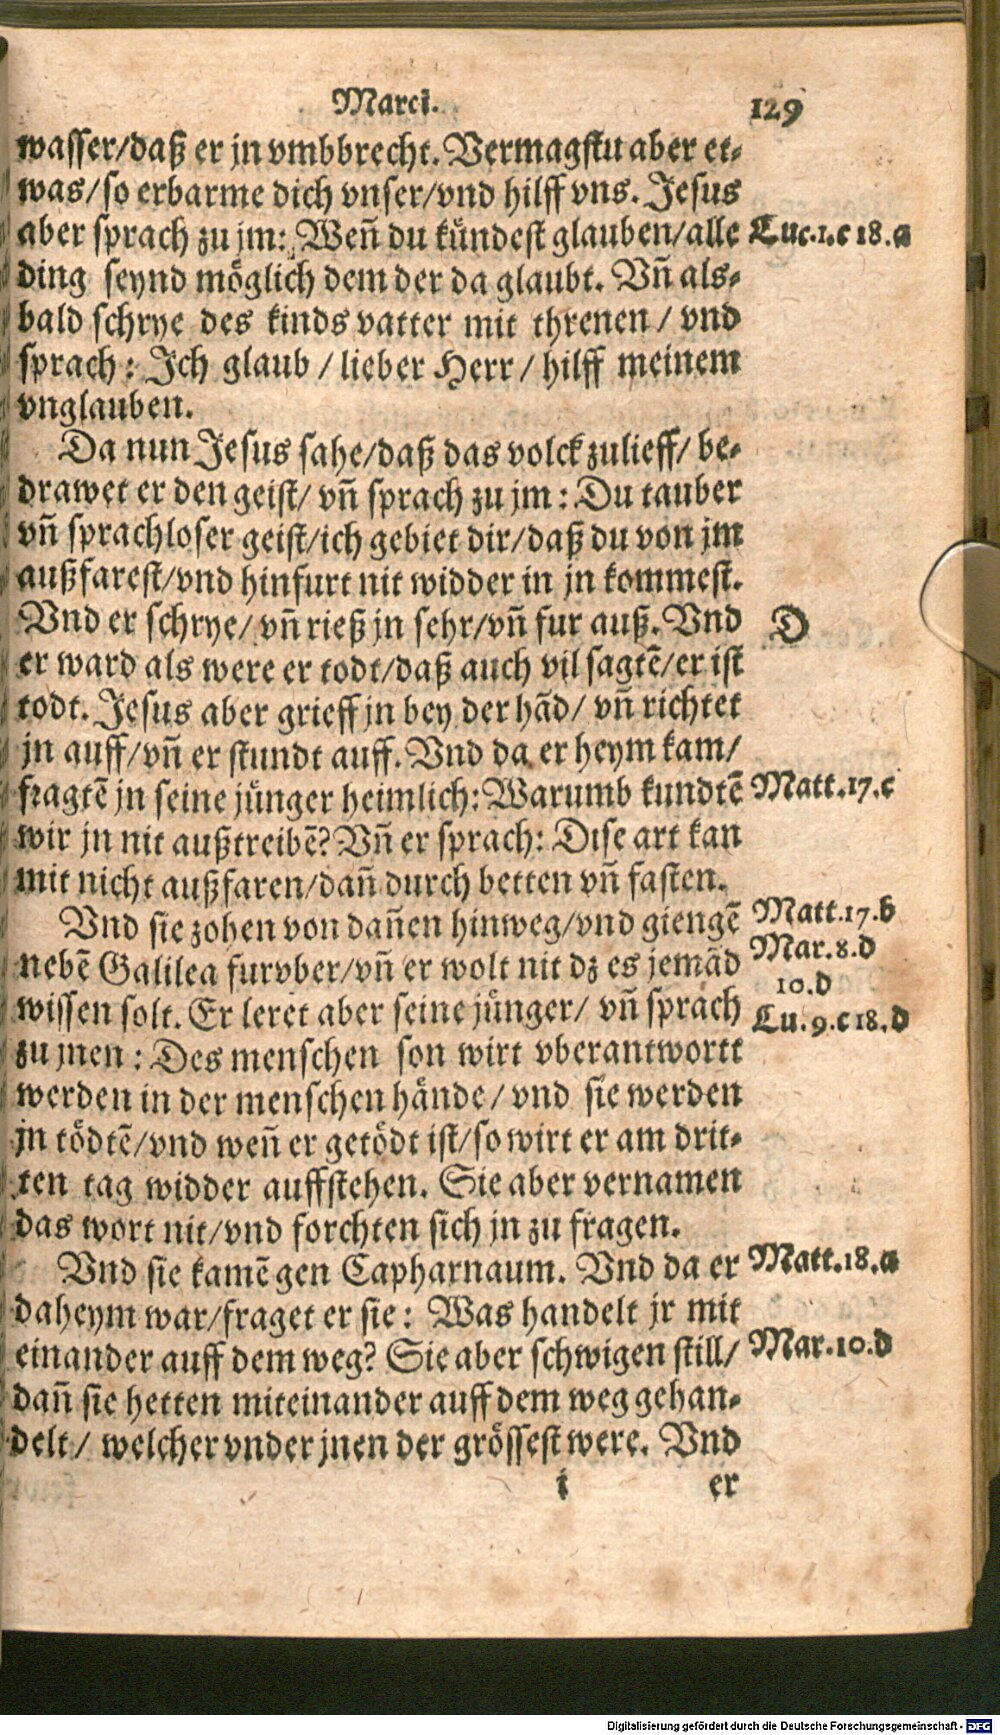 Marci. 129
wasser/daß er jn vmbbrecht. Vermagstu aber et-
was/so erbarme dich vnser/vnd hilff vns. Jesus
aber sprach zu jm: Weñ du kündest glauben/alle
Luc.1.c 18.a
ding seynd möglich dem der da glaubt. Vñ als-
bald schrye des kinds vatter mit threnen / vnd
sprach: Jch glaub / lieber Herr / hilff meinem
vnglauben.
Da nun Jesus sahe/daß das volck zulieff/ be-
drawet er den geist/ vñ sprach zu jm: Du tauber
vñ sprachloser geist/ich gebiet dir/daß du von jm
außfarest/vnd hinfurt nit widder in jn kommest.
Vnd er schrye/ vñ rieß jn sehr/vñ fur auß. Vnd
D
er ward als were er todt/daß auch vil sagtē/er ist
todt. Jesus aber grieff jn bey der hãd/ vñ richtet
jn auff/vñ er stundt auff. Vnd da er heym kam/
fragtē jn seine jünger heimlich: Warumb kundtē
Matt.17.c
wir jn nit außtreibē? Vñ er sprach: Dise art kan
mit nicht außfaren/dañ durch betten vñ fasten.
Vnd sie zohen von dañen hinweg/vnd giengē
Matt.17.b
nebē Galilea furvber/vñ er wolt nit dz es jemãd
Mar.8.d
10.d
wissen solt. Er leret aber seine jünger/ vñ sprach
Lu.9.c 18.d
zu jnen: Des menschen son wirt vberantwortt
werden in der menschen hände/ vnd sie werden
jn tödtē/vnd weñ er getödt ist/so wirt er am drit-
ten tag widder auffstehen. Sie aber vernamen
das wort nit/vnd forchten sich jn zu fragen.
Vnd sie kamē gen Capharnaum. Vnd da er
Matt.18.a
daheym war/fraget er sie: Was handelt jr mit
einander auff dem weg? Sie aber schwigen still/
Mar.10.d
dañ sie hetten miteinander auff dem weg gehan-
delt/ welcher vnder jnen der grössest were. Vnd
i er
Digitalisierung gefördert durch die Deutsche Forschungsgemeinschaft - DFG